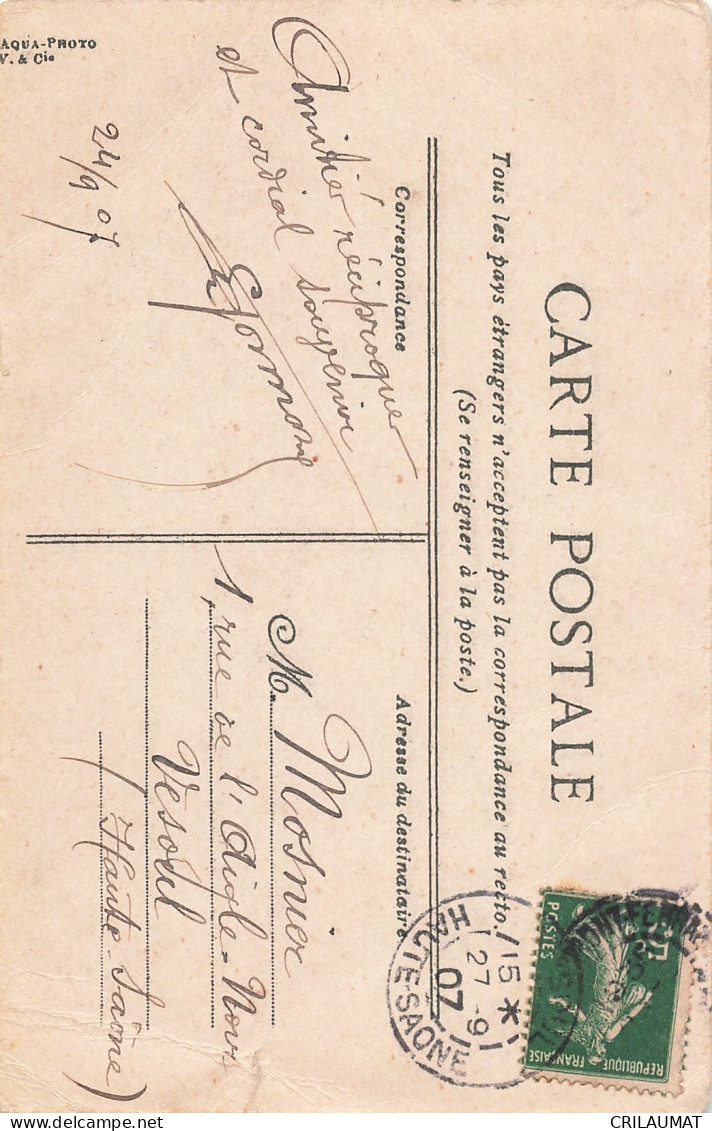 CARTE POSTALE
Tous les pays étrangers n'acceptent pas la correspondance au recto.
(Se renseigner à la poste.)
Correspondance
Adresse du destinataire
Amitiés réciproques
et cordial souvenir
24/9 07
M. Mosnier
1, rue de l'Aigle-Noir
Vesoul
(Haute-Saône)
AQUA-PHOTO
V. & Cie
15 *
27-9
07
HAUTE-SAONE
POSTES
REPUBLIQUE FRANÇAISE
CRILAUMAT